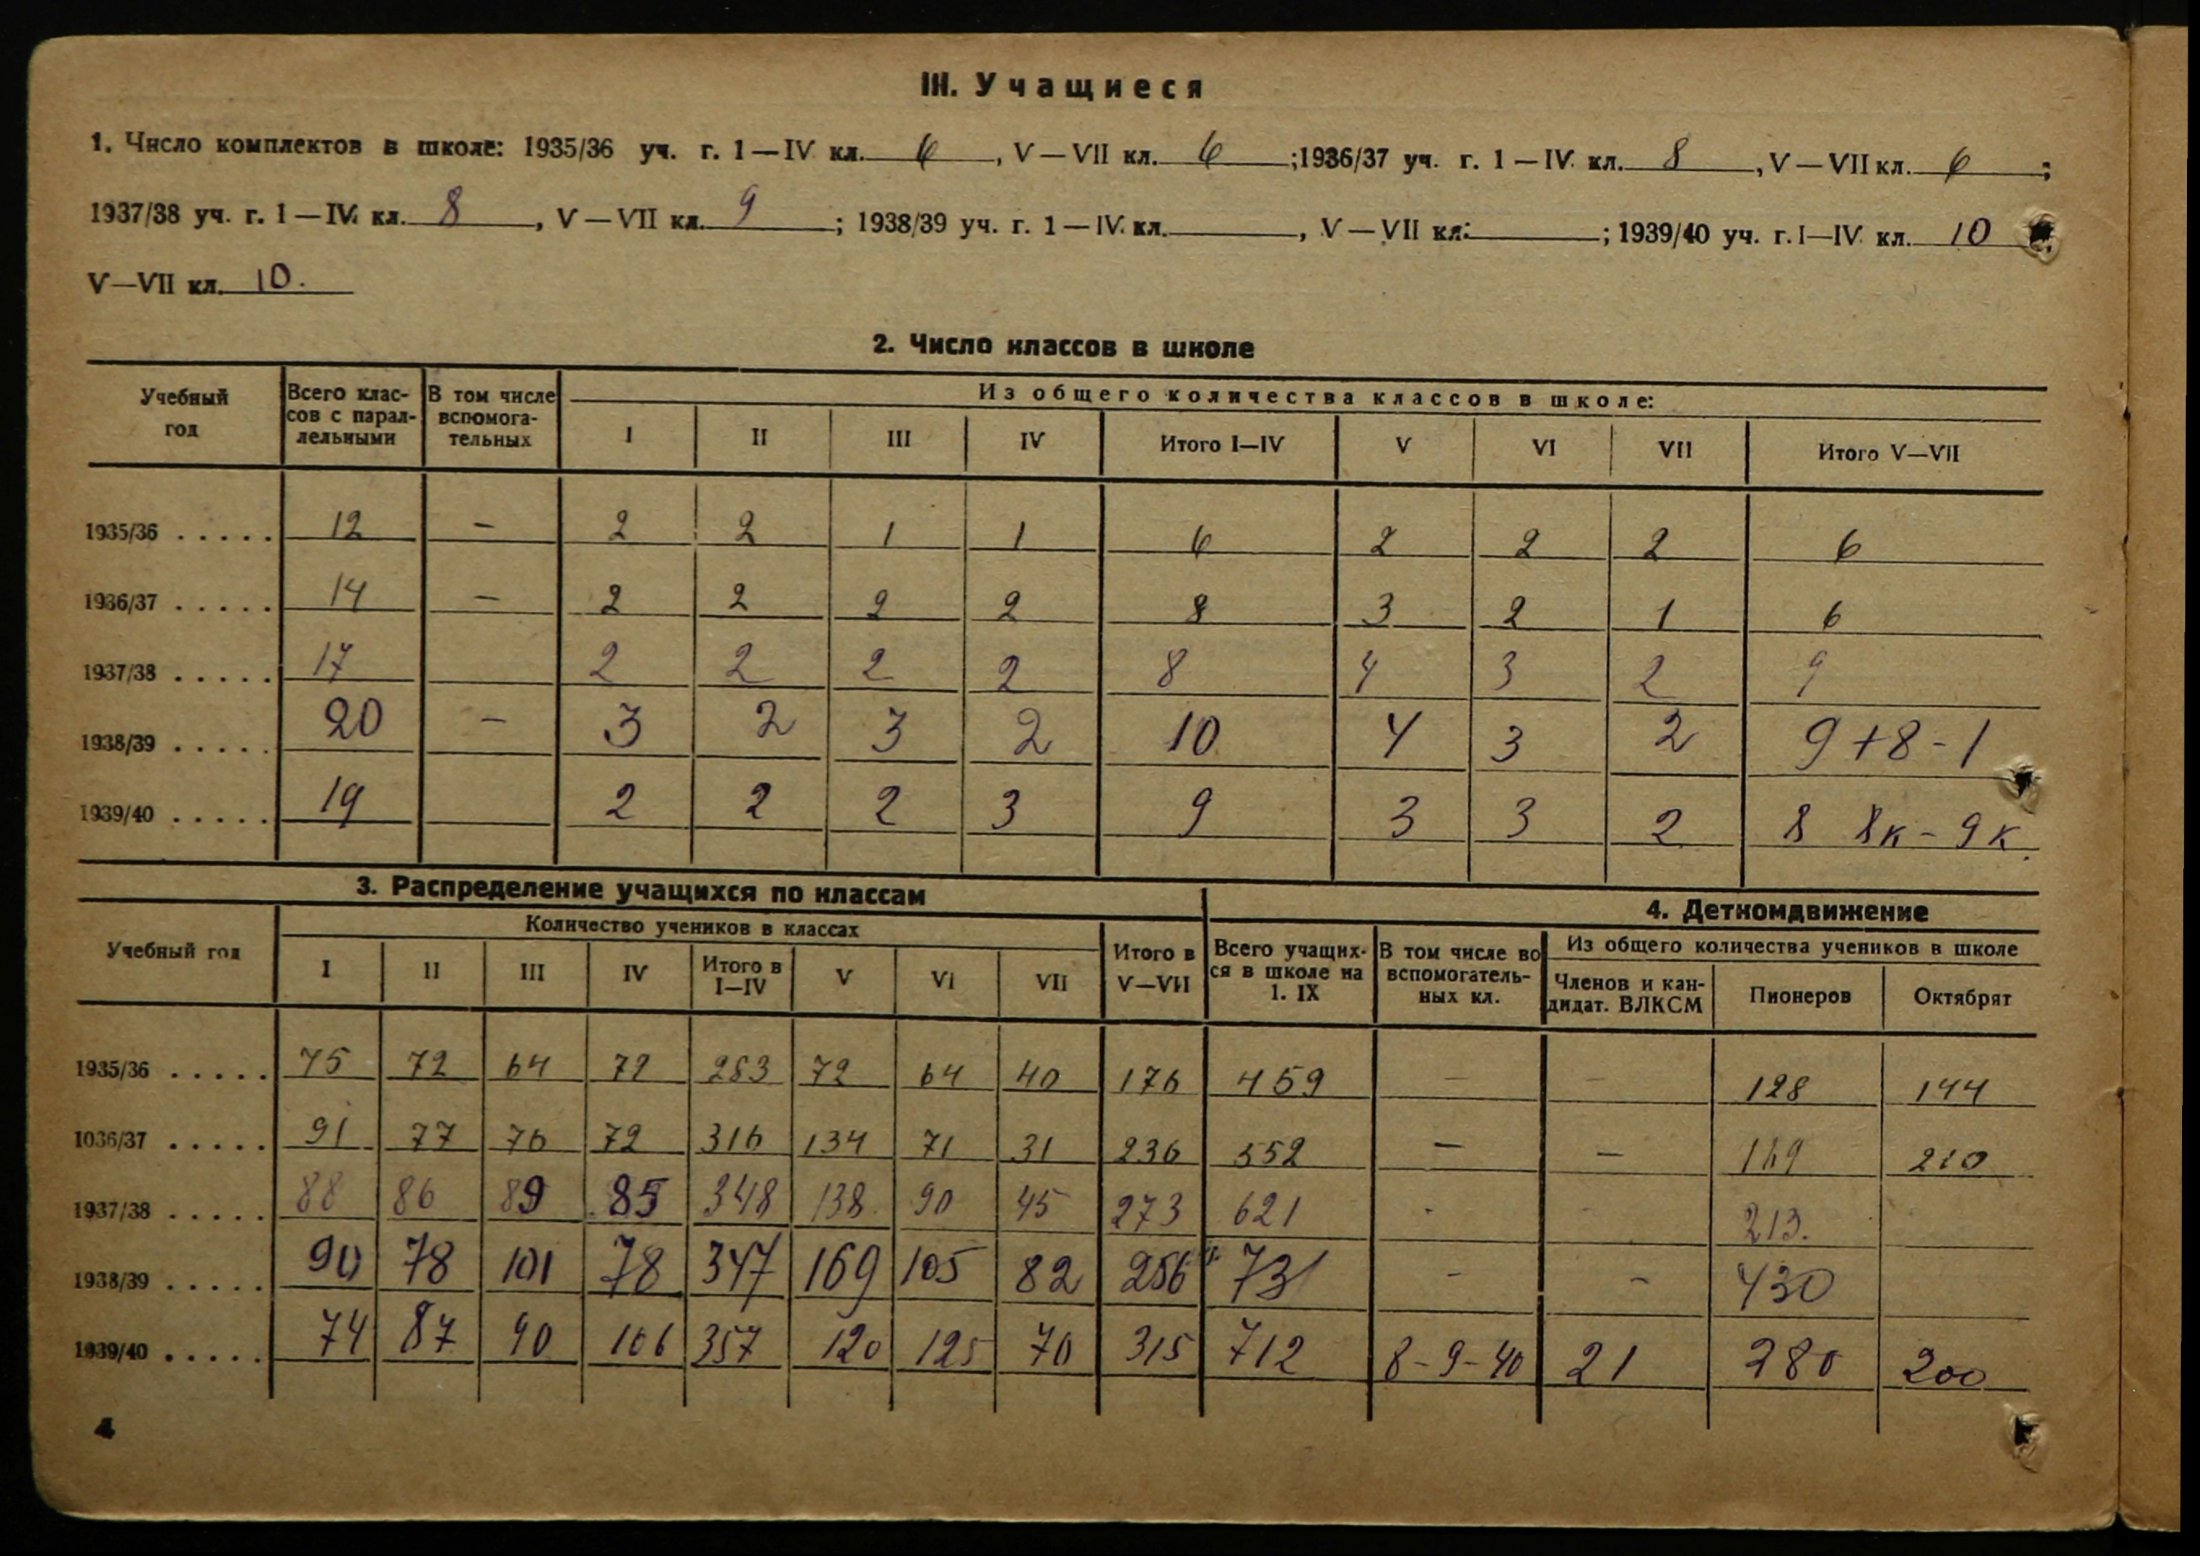 III. Учащиеся
1. Число комплектов в школе: 1935/36 уч. г. I—IV кл. 6, V—VII кл. 6; 1936/37 уч. г. I—IV кл. 8, V—VII кл. 6;
1937/38 уч. г. I—IV кл. 8, V—VII кл. 9; 1938/39 уч. г. I—IV кл. , V—VII кл. ; 1939/40 уч. г. I—IV кл. 10
V—VII кл. 10.
2. Число классов в школе
Учебный год Всего классов с параллельными В том числе вспомогательных Из общего количества классов в школе:
I II III IV Итого I—IV V VI VII Итого V—VII
1935/36 ..... 12 – 2 2 1 1 6 2 2 2 6
1936/37 ..... 14 – 2 2 2 2 8 3 2 1 6
1937/38 ..... 17 2 2 2 2 8 4 3 2 9
1938/39 ..... 20 – 3 2 3 2 10 4 3 2 9+8-1
1939/40 ..... 19 2 2 2 3 9 3 3 2 8 8к-9к.
3. Распределение учащихся по классам
4. Деткомдвижение
Учебный год Количество учеников в классах Итого в V—VII Всего учащихся в школе на 1. IX В том числе во вспомогательных кл. Из общего количества учеников в школе
I II III IV Итого в I—IV V VI VII Членов и кандидат. ВЛКСМ Пионеров Октябрят
1935/36 ..... 75 72 64 72 283 72 64 40 176 459 – – 128 144
1036/37 ..... 91 77 76 72 316 134 71 31 236 552 – – 169 210
1937/38 ..... 88 86 89 85 348 138 90 45 273 621 - - 213.
1938/39 ..... 90 78 101 78 347 169 105 82 256 731 - - 430
1939/40 ..... 74 87 90 106 357 120 125 70 315 712 8-9-40 21 280 200
4